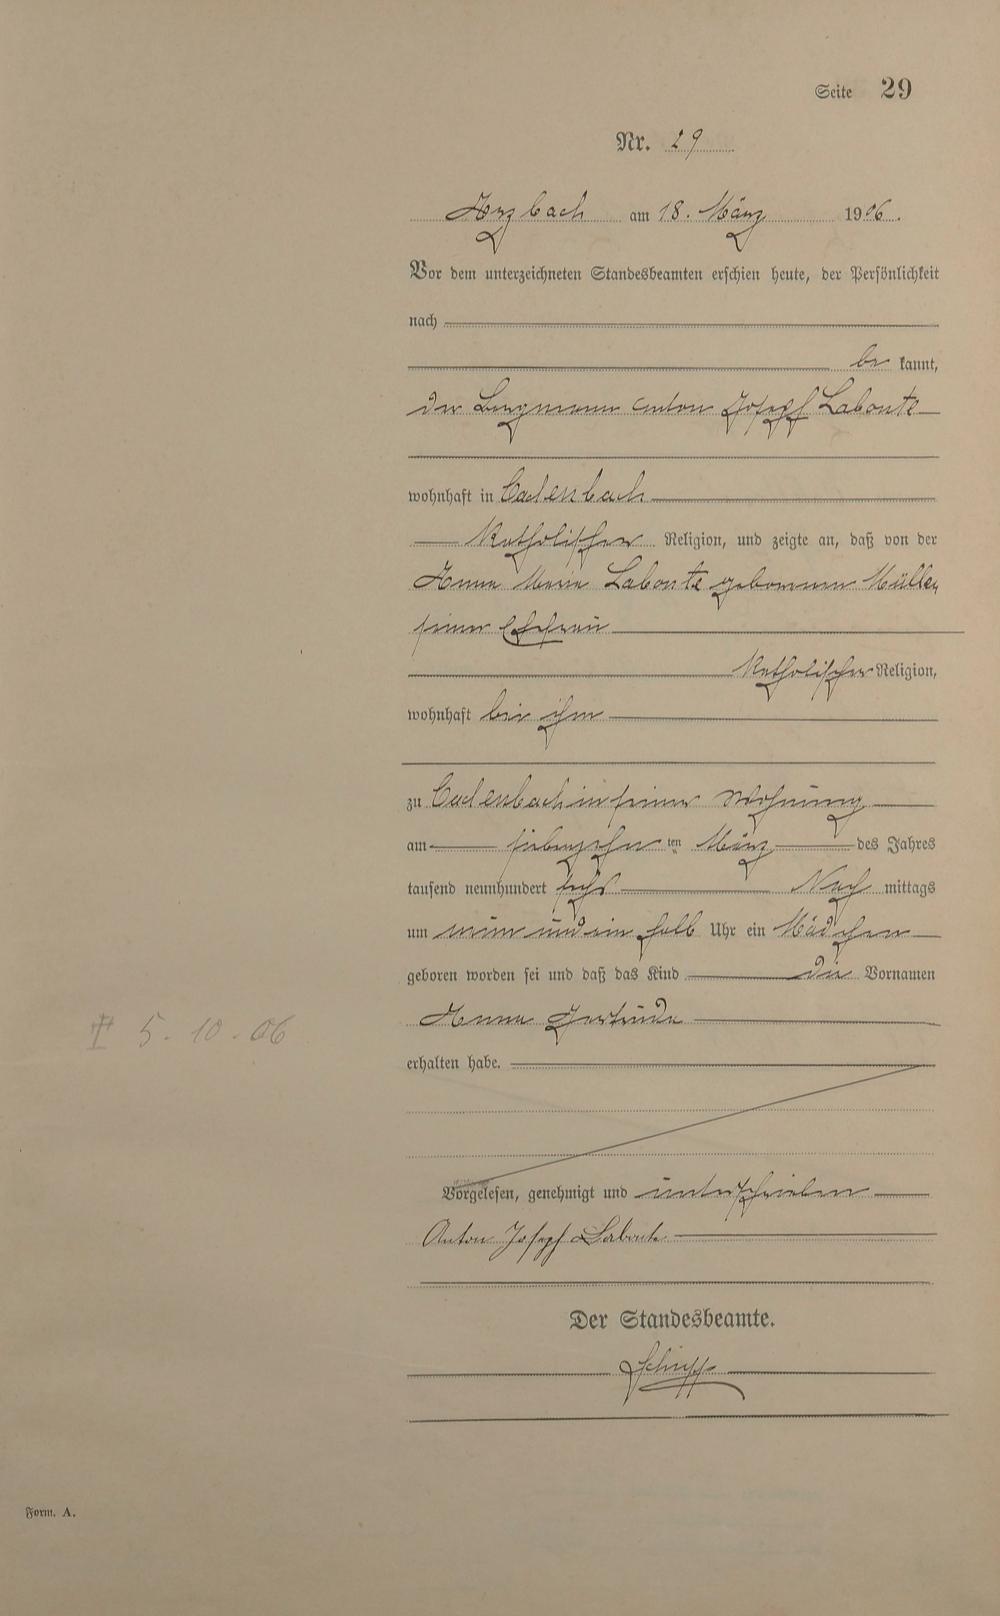 Seite 29
Nr. 29
am 18. März 1906.
Vor dem unterzeichneten Standesbeamten erschien heute, der Persönlichkeit
nach
be kannt,
der Bergmann Anton Joseph Labonte
wohnhaft in Cadenbach
katholischer Religion, und zeigte an, daß von der
Anna Maria Labonte geborenen Müller,
seiner Ehefrau
katholischer Religion,
wohnhaft bei ihm
zu Cadenbach in seiner Wohnung
am siebenzehn ten März des Jahres
tausend neunhundert sechs Nach mittags
um neun und ein halb Uhr ein Mädchen
geboren worden sei und daß das Kind die Vornamen
Anna Gertruda
erhalten habe.
‡ 5-10-06
Vorgelesen, genehmigt und unterschrieben
Anton Joseph Labonte
Der Standesbeamte.
Form. A.